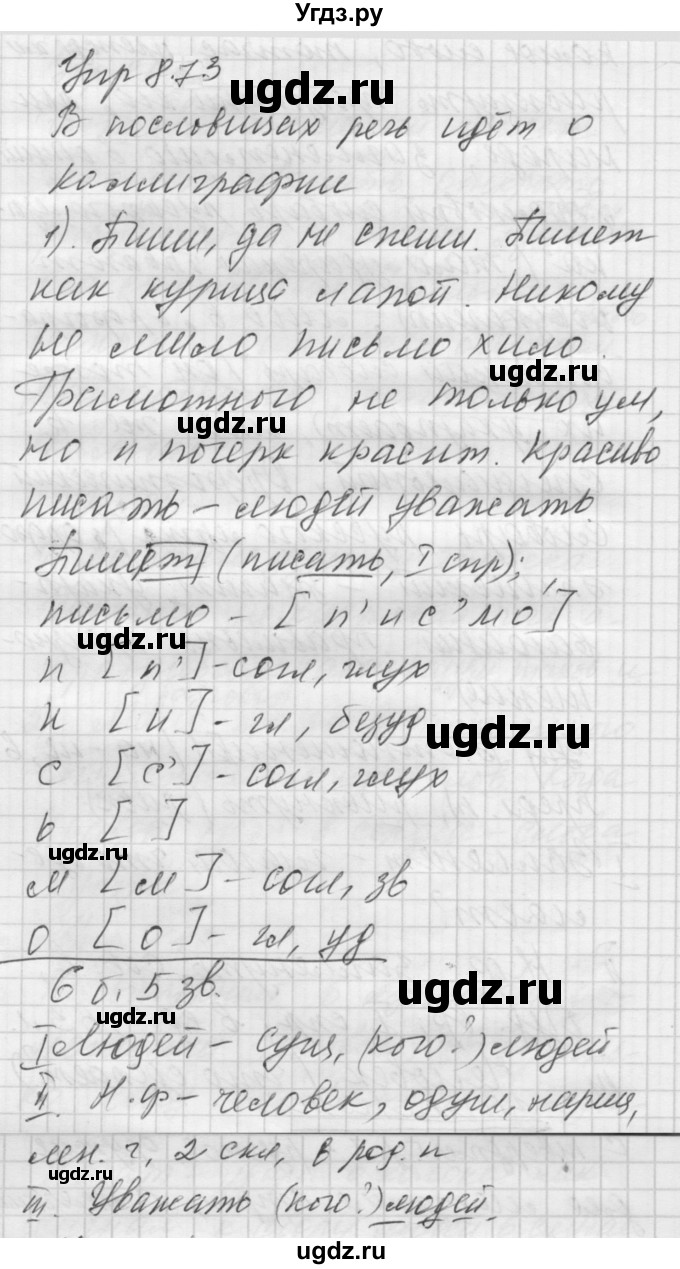 Угдз.ру
Упр 8.73
ugdz.ru
В пословицах речь идёт о
ugdz.ru
каллиграфии
1). Пиши, да не спеши. Пишет
как курица лапой. Никому
не мило письмо хило.
ugdz.ru
Грамотного не только ум,
ugdz.ru
но и почерк красит. Красиво
писать – людей уважать
Пишет (писать, I спр);
письмо – [п'ис'мо]
ugdz.ru
п [п'] – согл, глух
и [и] – гл, безуд
ugdz.ru
с [с'] – согл, глух
ь [ ]
ugdz.ru
м [м] – согл, зв
о [о] – гл, уд
6 б, 5 зв.
ugdz.ru
I Людей – сущ, (кого?) людей
II. Н.ф – человек, одуш, нариц,
мн. ч, 2 скл, в род. п
ugdz.ru
III. Уважать (кого?) людей.
ugdz.ru